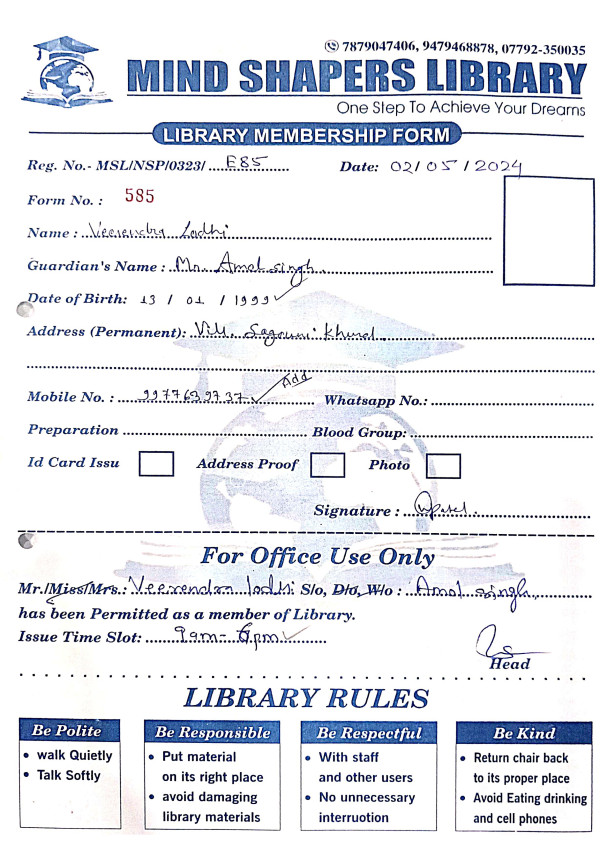 7879047406, 9479468878, 07792-350035
MIND SHAPERS LIBRARY
One Step To Achieve Your Dreams
LIBRARY MEMBERSHIP FORM
Reg. No.- MSL/NSP/0323/ E85 Date: 02/05/2024
Form No. : 585
Name : Veerendra Lodhi
Guardian's Name : Mr. Amol singh
Date of Birth: 13 / 01 / 1999
Address (Permanent): Vill. Sagouni Khurd
Mobile No. : 9977639737 Add Whatsapp No.:
Preparation Blood Group:
Id Card Issu Address Proof Photo
Signature :
For Office Use Only
Mr./Miss/Mrs.: Veerendra lodhi S/o, D/o, W/o : Amol singh
has been Permitted as a member of Library.
Issue Time Slot: 9am - 6pm
Head
LIBRARY RULES
Be Polite
• walk Quietly
• Talk Softly
Be Responsible
• Put material
on its right place
• avoid damaging
library materials
Be Respectful
• With staff
and other users
• No unnecessary
interruotion
Be Kind
• Return chair back
to its proper place
• Avoid Eating drinking
and cell phones